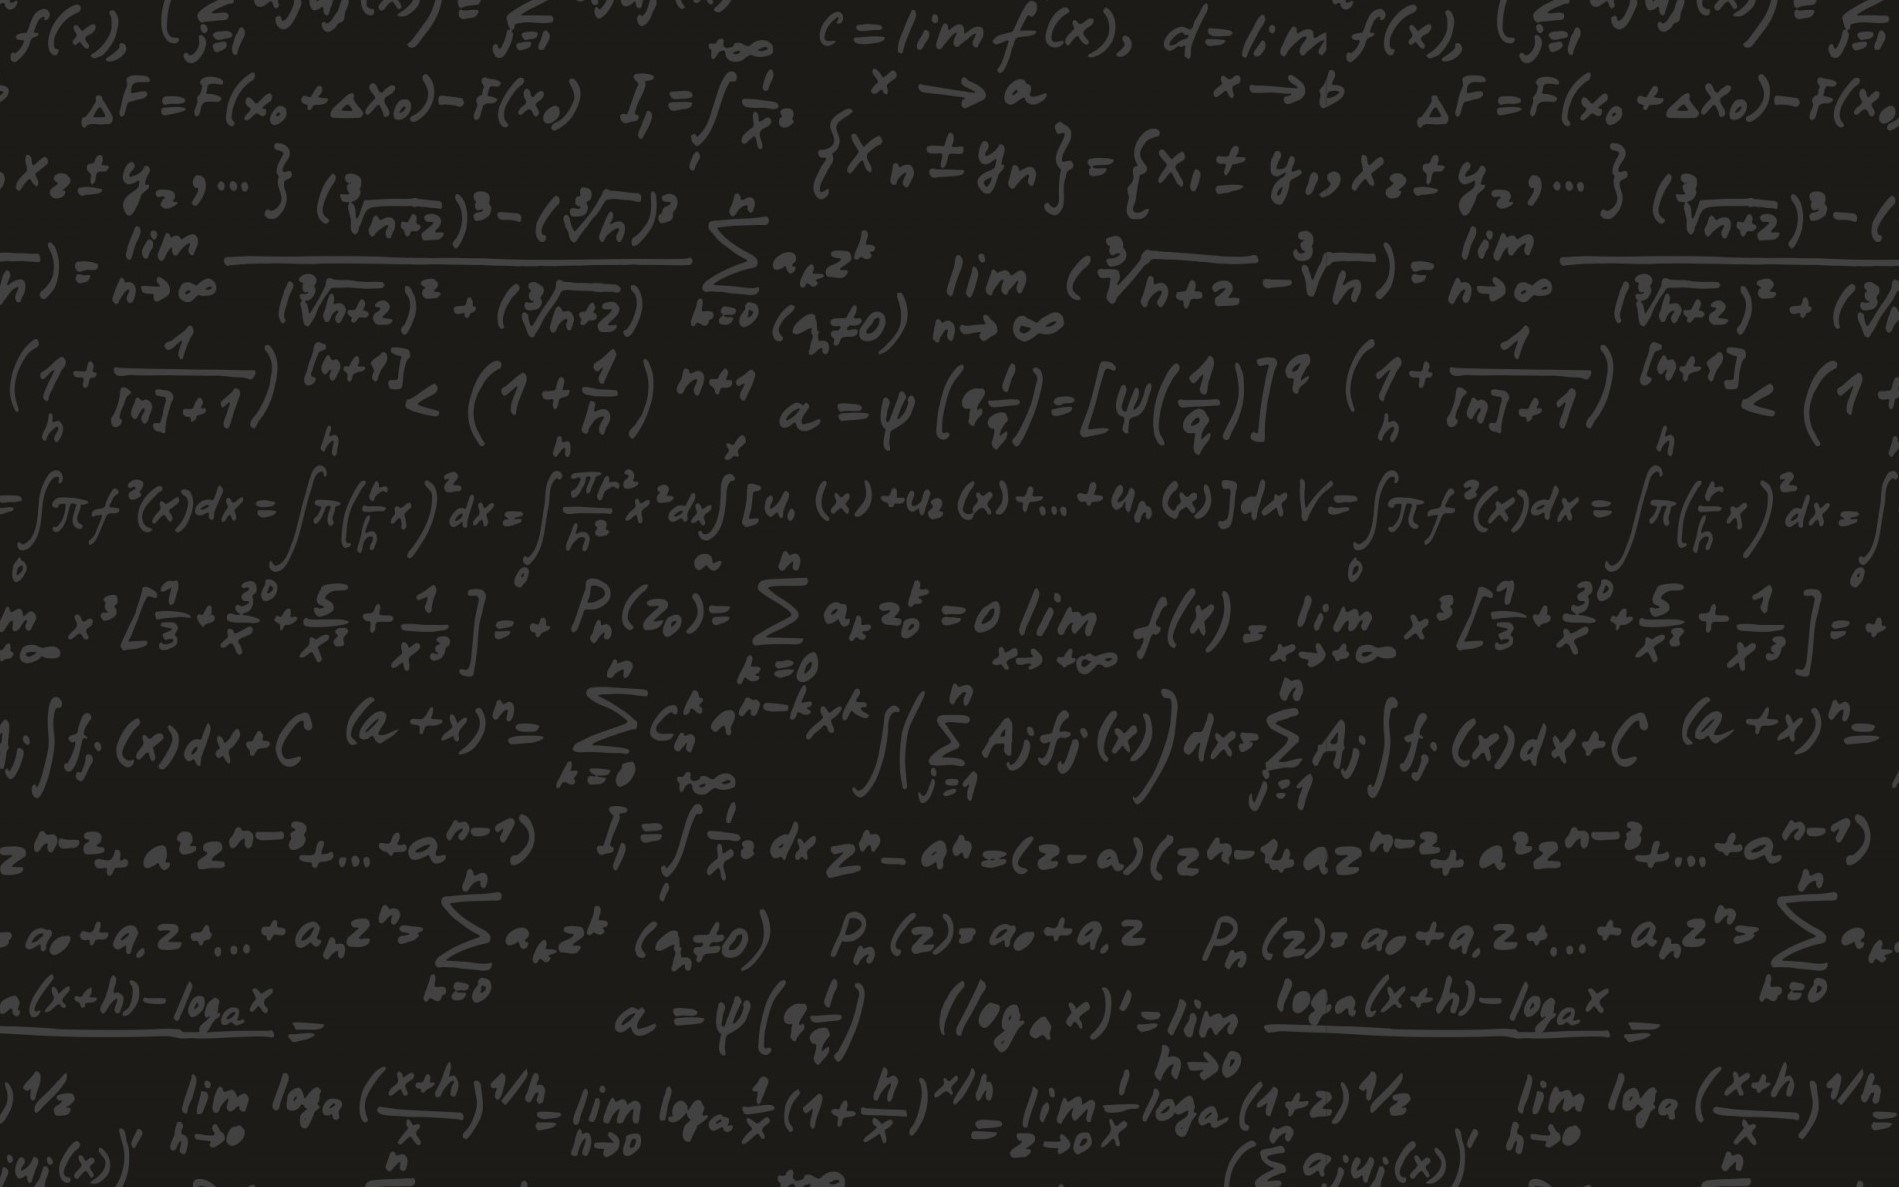 f(x), (Σ j=1 a_j u_j(x)) = Σ j=1 a_j u_j(x) +∞ c = lim f(x), d = lim f(x), (Σ j=1 a_j u_j(x)) = Σ j=1
x → a x → b
△F = F(x₀ + △x₀) − F(x₀) I₁ = ∫₁ 1/x³ △F = F(x₀ + △x₀) − F(x₀
x₂ ± y₂, ... } {xₙ ± yₙ} = {x₁ ± y₁, x₂ ± y₂, ... }
n) = lim n→∞ ((∛n+2)³ − (∛n)³)/((∛n+2)² + (∛n+2)) Σ k=0 n aₖ zᵏ (aₙ≠0) lim n→∞ (∛n+2 − ∛n) = lim n→∞ ((∛n+2)³ − ()/((∛n+2)² + (∛n
(1 + 1/([n]+1))ₙ [n+1] < (1 + 1/n)ₙ n+1 a = ψ(q 1/q) = [ψ(1/q)]^q (1 + 1/([n]+1))ₙ [n+1] < (1 +
= ∫₀ πf²(x)dx = ∫ʰ π(r/h x)² dx = ∫₀ⁿ πr²/h² x² dx ∫ₐˣ [u₁(x) + u₂(x) + ... + uₙ(x)]dx V = ∫₀ πf²(x)dx = ∫ʰ π(r/h x)² dx = ∫₀
m +∞ x³[1/3 + 30/x + 5/x² + 1/x³] = + Pₙ(z₀) = Σ k=0 n aₖ z₀ᵏ = 0 lim x→+∞ f(x) = lim x→+∞ x³[1/3 + 30/x + 5/x² + 1/x³] = +
A_j ∫ f_j(x)dx + C (a + x)ⁿ = Σ k=0 n Cₙᵏ aⁿ⁻ᵏ xᵏ ∫(Σ j=1 n A_j f_j(x))dx = Σ j=1 n A_j ∫ f_j(x)dx + C (a + x)ⁿ =
zⁿ⁻² + a²zⁿ⁻³ + ... + aⁿ⁻¹) I₁ = ∫₁^+∞ 1/x³ dx zⁿ − aⁿ = (z − a)(zⁿ⁻¹ + azⁿ⁻² + a²zⁿ⁻³ + ... + aⁿ⁻¹)
= a₀ + a₁z + ... + aₙzⁿ = Σ k=0 n aₖ zᵏ (aₙ≠0) Pₙ(z) = a₀ + a₁z Pₙ(z) = a₀ + a₁z + ... + aₙzⁿ = Σ k=0 n aₖ
a(x+h) − logₐx = a = ψ(q 1/q) (logₐx)' = lim h→0 (logₐ(x+h) − logₐx) =
)^1/z lim h→0 logₐ((x+h)/x)^1/h = lim h→0 logₐ 1/x (1 + h/x)^x/h = lim z→0 1/x logₐ(1+z)^1/z lim h→0 logₐ((x+h)/x)^1/h =
ju_j(x))' n +∞ (Σ n a_j u_j(x))' n